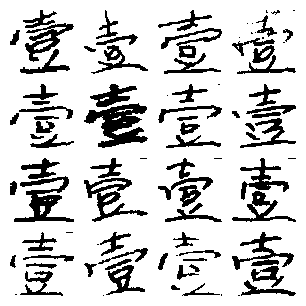 壹壹壹壹
壹壹壹壹
壹壹壹壹
壹壹壹壹